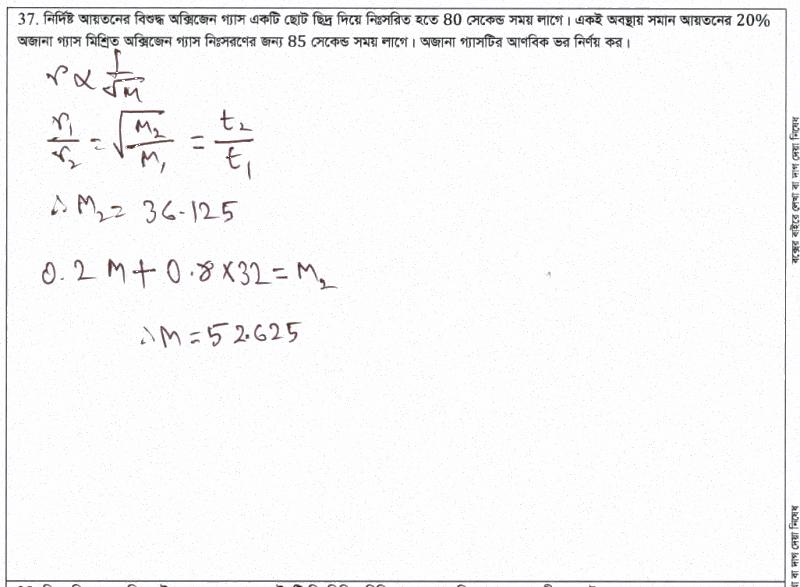 37. নির্দিষ্ট আয়তনের বিশুদ্ধ অক্সিজেন গ্যাস একটি ছোট ছিদ্র দিয়ে নিঃসরিত হতে 80 সেকেন্ড সময় লাগে। একই অবস্থায় সমান আয়তনের 20%
অজানা গ্যাস মিশ্রিত অক্সিজেন গ্যাস নিঃসরণের জন্য 85 সেকেন্ড সময় লাগে। অজানা গ্যাসটির আণবিক ভর নির্ণয় কর।
r ∝ 1/√M
r₁/r₂ = √(M₂/M₁) = t₂/t₁
∴ M₂ = 36.125
0.2 M + 0.8 × 32 = M₂
∴ M = 52.625
বক্সের বাইরে লেখা বা দাগ দেয়া নিষেধ
বা দাগ দেয়া নিষেধ